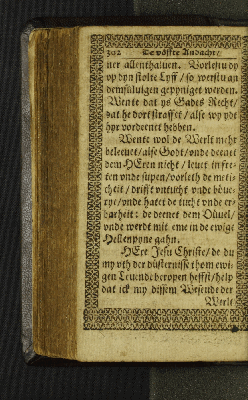 302 De vöffte Andacht/
ner allenthaluen. Vorlestu dy
vp dyn stolte Lyff/ so werstu an
demsüluigen gepyniget werden.
Wente dat ys Gades Recht/
dat he dort straffet/ alse wy ydt
hyr vordeenet hebben.
Wente wol de Werlt mehr
beleeuet/ alse Godt/ vnde deenet
dem HEren nicht/ leuet in fre-
ten vnde supen/ vorleth de meti-
cheit/ drifft vntucht vnde böue-
rye/ vnde hatet de tucht vnde er-
barheit: de deenet dem Düuel/
vnde werdt mit eme in de ewige
Hellenpyne gahn.
HEre Jesu Christe/ de du
my vth der düsternisse thom ewi-
gen Leuende beropen heffst/ help
dat ick my dissem Wesende der
Werlt